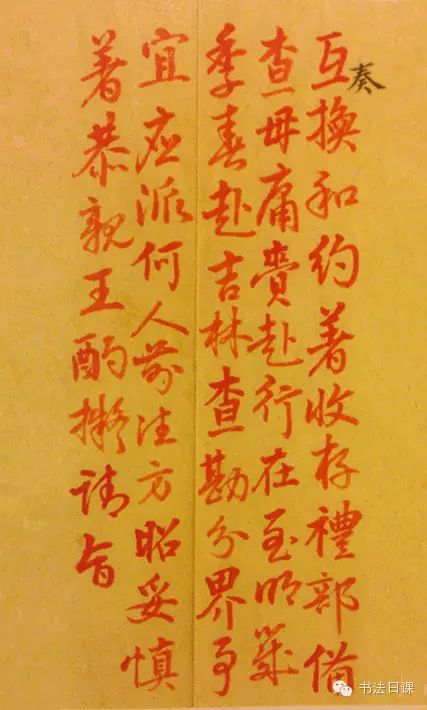 奏
互換和約著收存禮部備
查毋庸賫赴行在至明歲
季春赴吉林查勘分界事
宜应派何人前往方昭妥慎
著恭親王酌擬請旨
书法日课